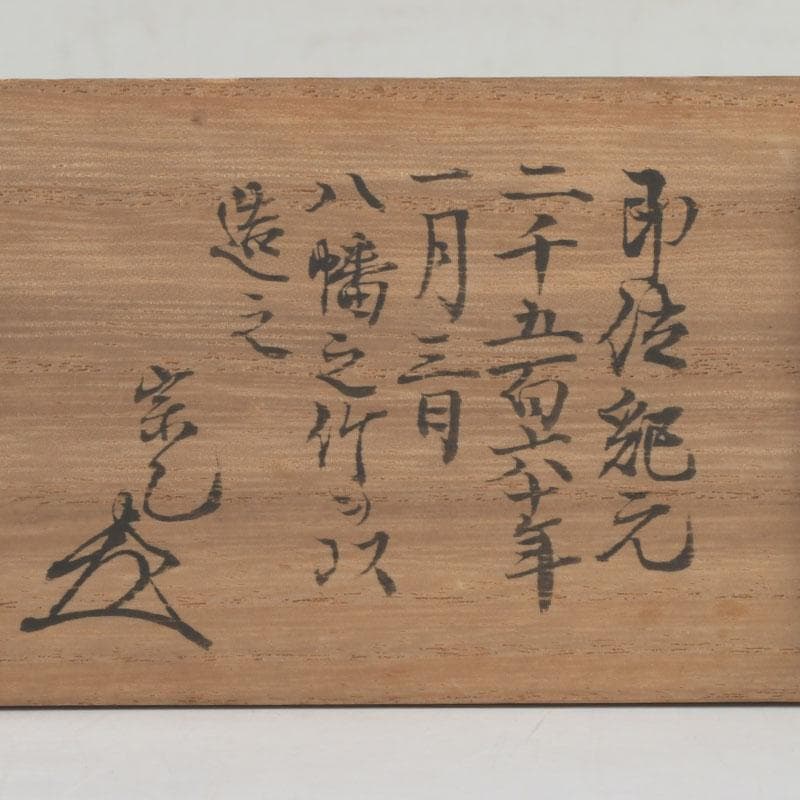 即位紀元
二千五百六十年
一月三日
八幡之竹ヲ以
造之
宗己